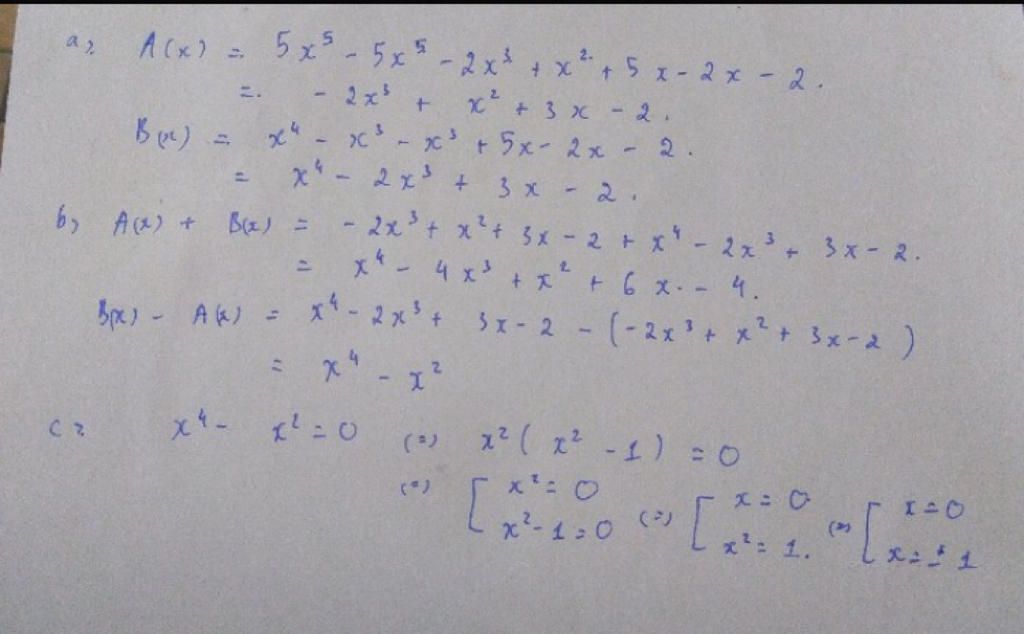 a, A(x) = 5x⁵ - 5x⁵ - 2x³ + x² + 5x - 2x - 2.
= - 2x³ + x² + 3x - 2.
B(x) = x⁴ - x³ - x³ + 5x - 2x - 2.
= x⁴ - 2x³ + 3x - 2.
b, A(x) + B(x) = - 2x³ + x² + 3x - 2 + x⁴ - 2x³ + 3x - 2.
= x⁴ - 4x³ + x² + 6x - 4.
B(x) - A(x) = x⁴ - 2x³ + 3x - 2 - (-2x³ + x² + 3x - 2)
= x⁴ - x²
c, x⁴ - x² = 0 (=) x² (x² - 1) = 0
(=) [ x² = 0 (=) [ x = 0 (=) [ x = 0
x² - 1 = 0 x² = 1. x = ± 1